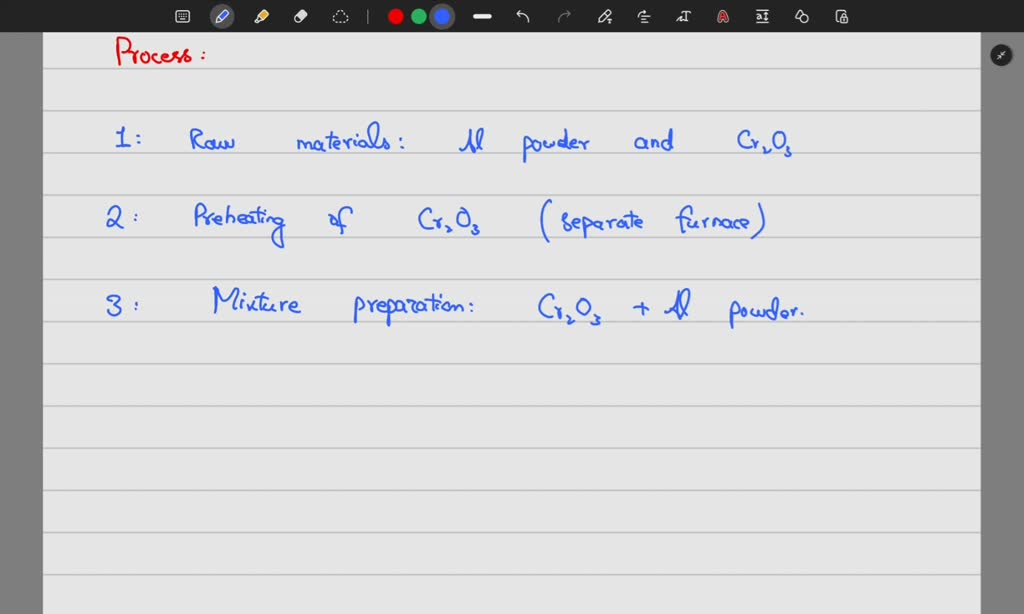 Process:
1: Raw materials: Al powder and Cr₂O₃
2: Preheating of Cr₂O₃ (separate furnace)
3: Mixture preparation: Cr₂O₃ + Al powder.